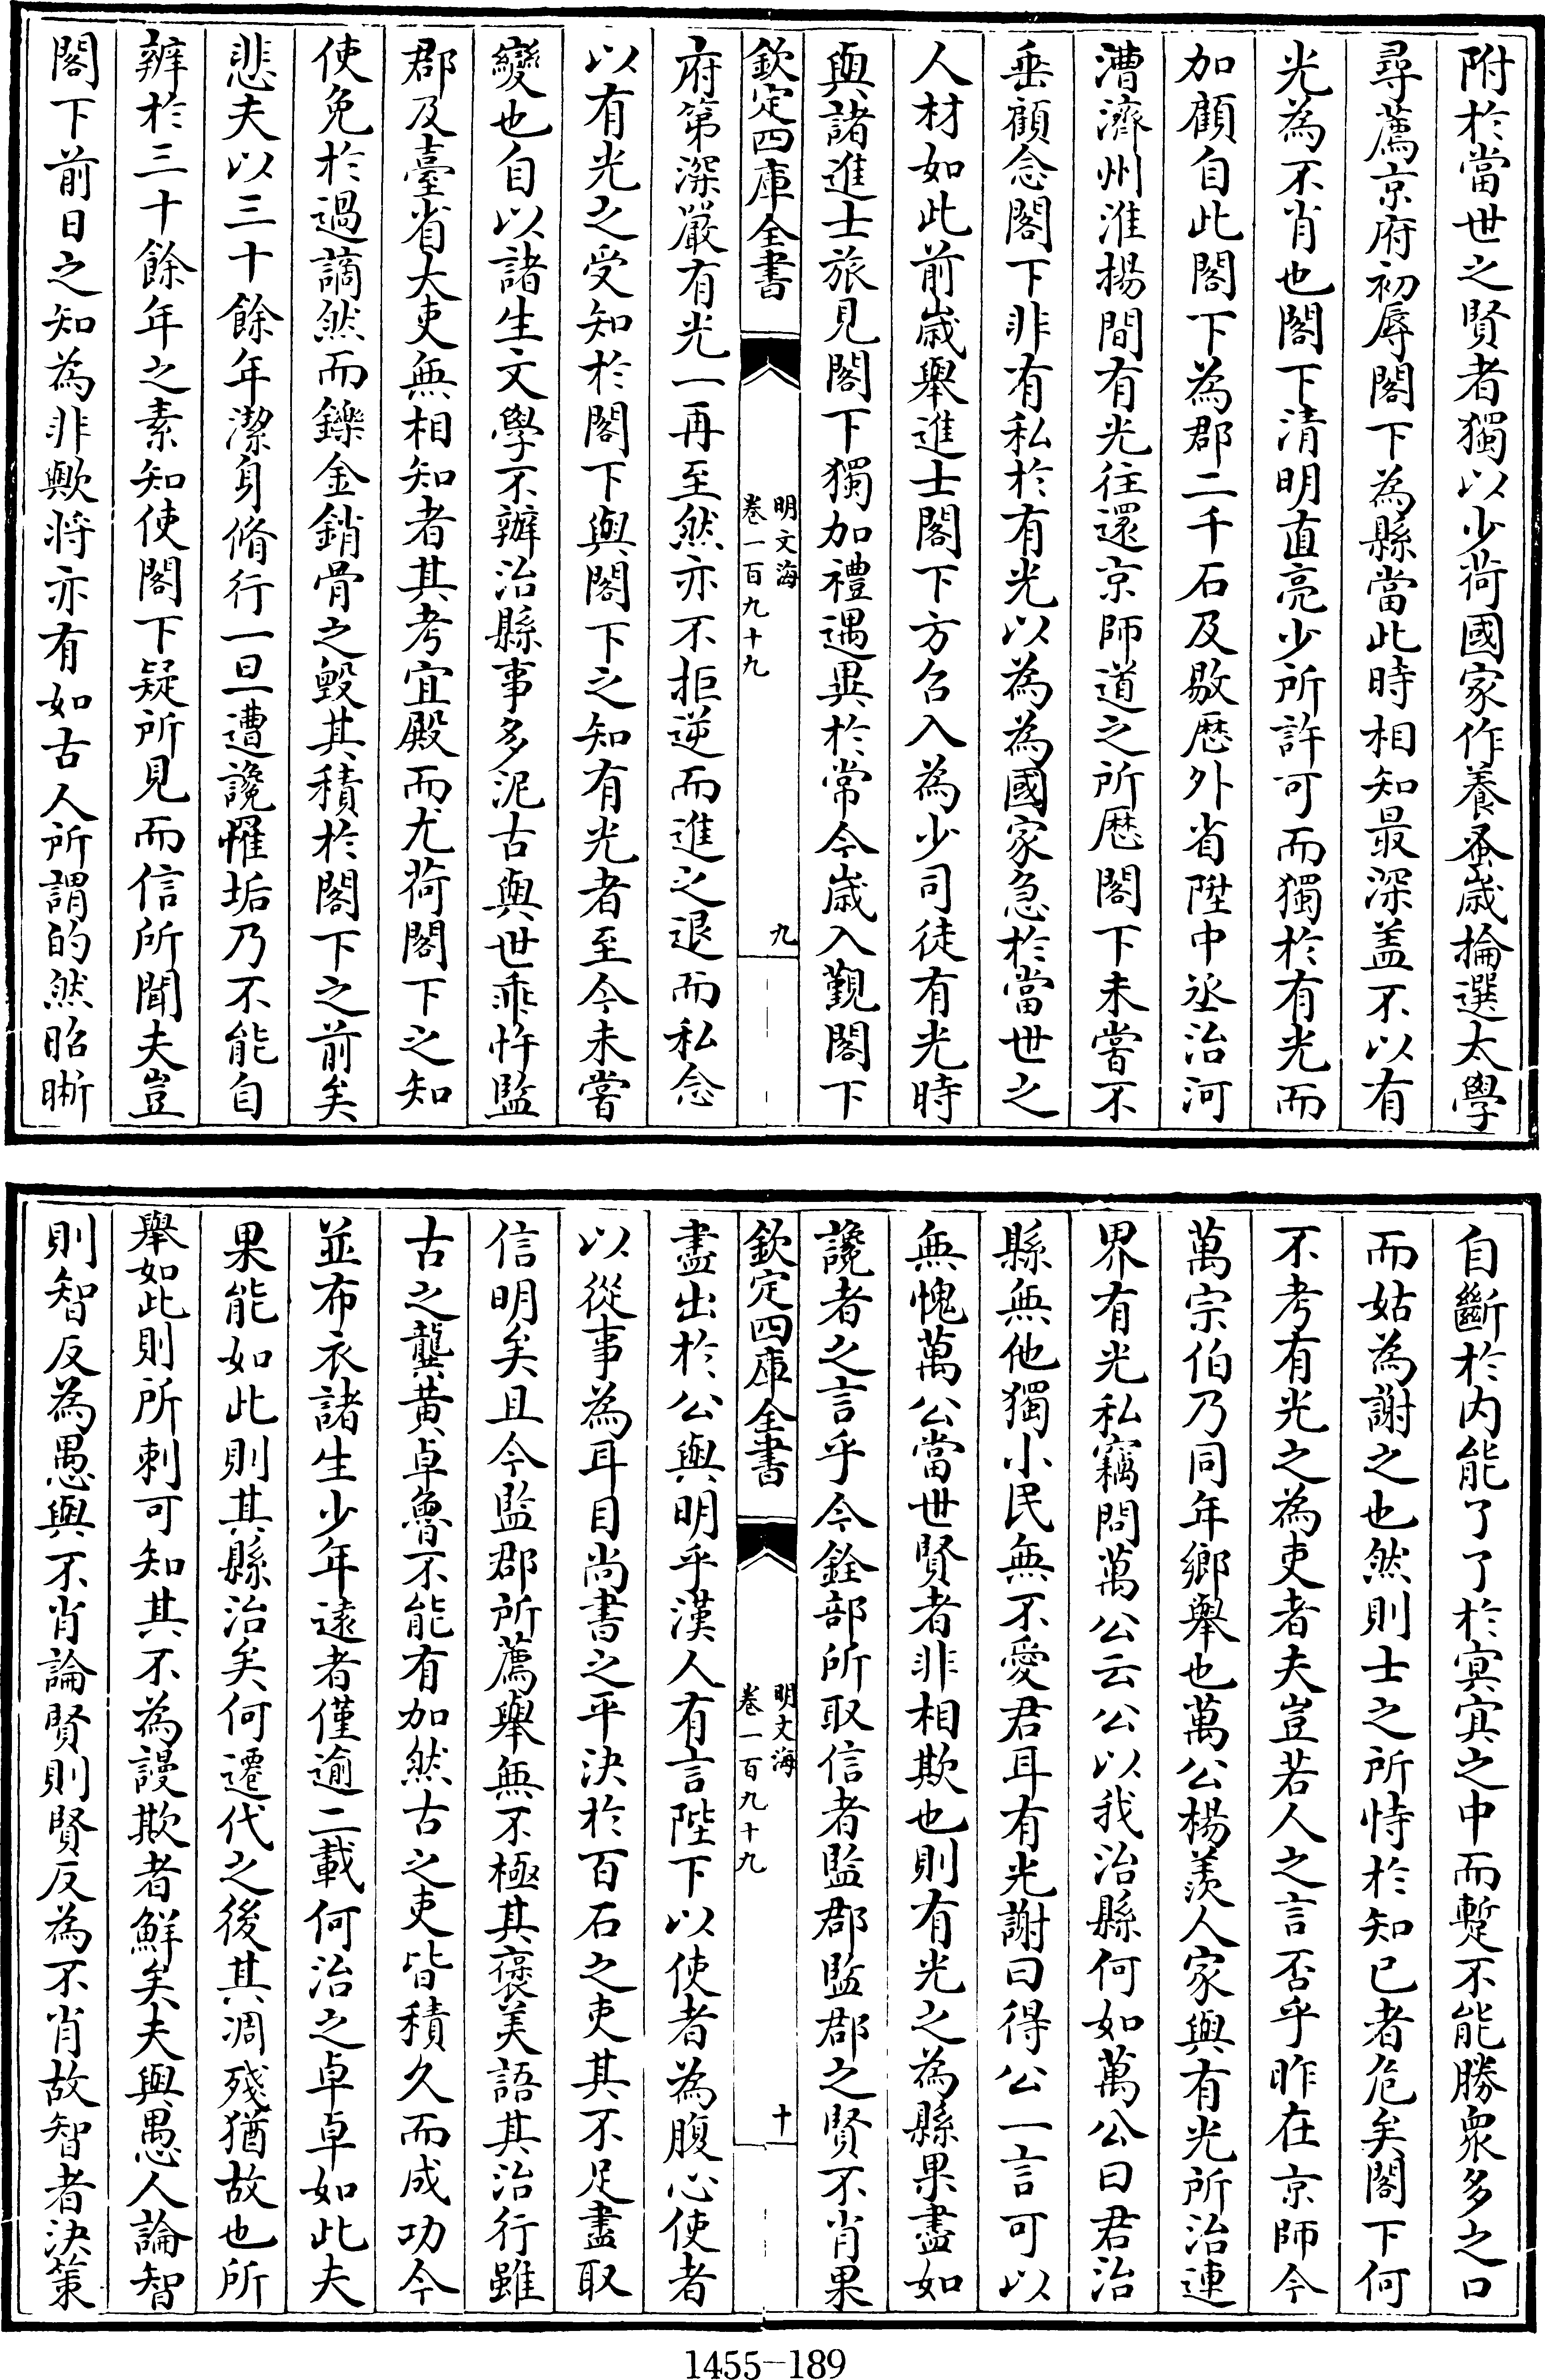 附於當世之賢者獨以少荷國家作養蚤歲掄選太學
尋薦京府初辱閣下為縣當此時相知最深盖不以有
光為不肖也閣下清明直亮少所許可而獨於有光而
加顧自此閣下為郡二千石及敭歴外省陞中丞治河
漕濟州淮楊間有光往還京師道之所歴閣下未嘗不
垂顧念閣下非有私於有光以為為國家急於當世之
人材如此前歲舉進士閣下方召入為少司徒有光時
與諸進士旅見閣下獨加禮遇異於常今歲入覲閣下
欽定四庫全書
明文海
卷一百九十九
九
府第深嚴有光一再至然亦不拒逆而進之退而私念
以有光之受知於閣下與閣下之知有光者至今未嘗
變也自以諸生文學不辦治縣事多泥古與世乖忤監
郡及臺省大吏無相知者其考宜殿而尤荷閣下之知
使免於過謫然而鑠金銷骨之毀其積於閣下之前矣
悲夫以三十餘年潔身脩行一旦遭讒罹垢乃不能自
辨於三十餘年之素知使閣下疑所見而信所聞夫豈
閣下前日之知為非歟將亦有如古人所謂的然昭晰
自斷於内能了了於冥冥之中而蹔不能勝衆多之口
而姑為謝之也然則士之所恃於知已者危矣閣下何
不考有光之為吏者夫豈若人之言否乎昨在京師今
萬宗伯乃同年鄉舉也萬公楊羨人家與有光所治連
界有光私竊問萬公云公以我治縣何如萬公曰君治
縣無他獨小民無不愛君耳有光謝曰得公一言可以
無愧萬公當世賢者非相欺也則有光之為縣果盡如
讒者之言乎今銓部所取信者監郡監郡之賢不肖果
欽定四庫全書
明文海
卷一百九十九
十
盡出於公與明乎漢人有言陛下以使者為腹心使者
以從事為耳目尚書之平決於百石之吏其不足盡取
信明矣且今監郡所薦舉無不極其褒美語其治行雖
古之龔黄卓魯不能有加然古之吏皆積久而成功今
並布衣諸生少年逺者僅逾二載何治之卓卓如此夫
果能如此則其縣治矣何遷代之後其凋殘猶故也所
舉如此則所刺可知其不為謾欺者鮮矣夫與愚人論智
則智反為愚與不肖論賢則賢反為不肖故智者決策
1455-189